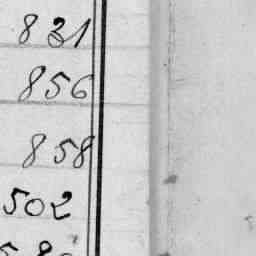 831
856
858
502